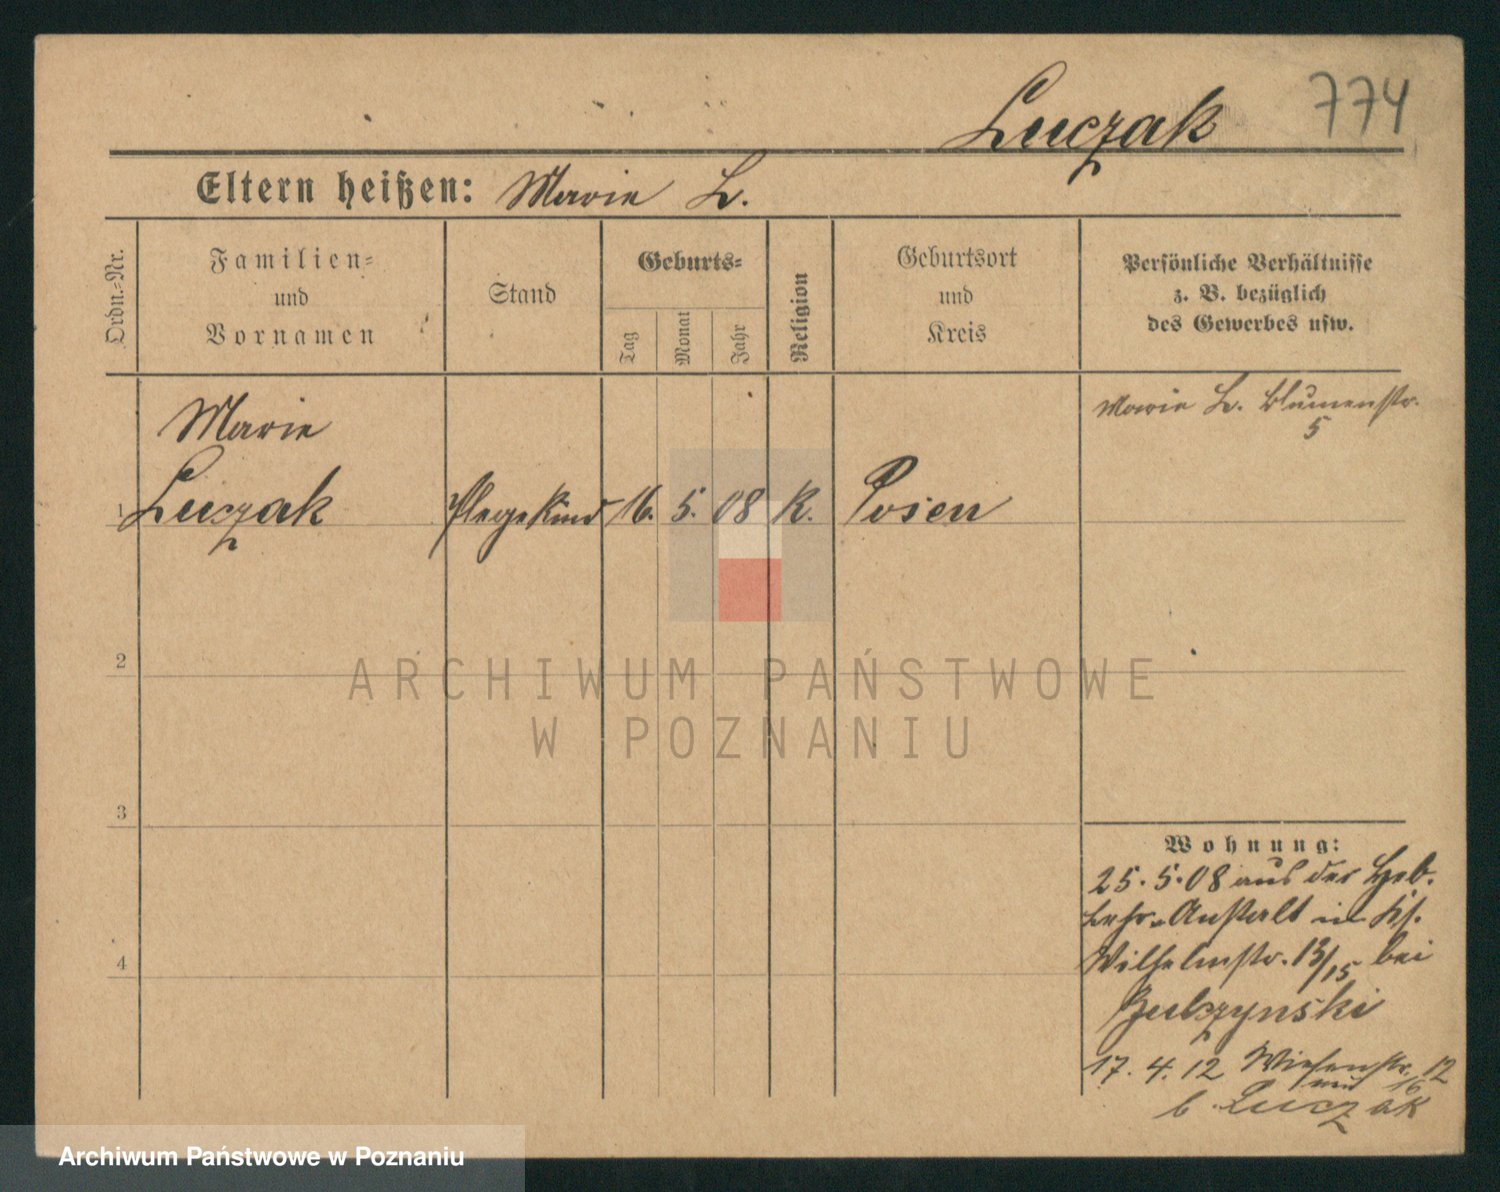 Luczak 774
Eltern heißen: Marie L.
Ordn.-Nr.
Familien-
und
Vornamen
Stand
Geburts-
Tag
Monat
Jahr
Religion
Geburtsort
und
Kreis
Persönliche Verhältnisse
z. B. bezüglich
des Gewerbes usw.
Marie
Marie L. Blumenstr.
5
1 Luczak Pflegekind 16. 5. 08 K. Posen
2
ARCHIWUM PAŃSTWOWE
W POZNANIU
3
Wohnung:
25.5.08 aus der Heb.
Lehr-Anstalt in
4
Wilhelmstr. 13/15 bei
17.4.12 Wiesenstr. 12
b. Luczak
Archiwum Państwowe w Poznaniu